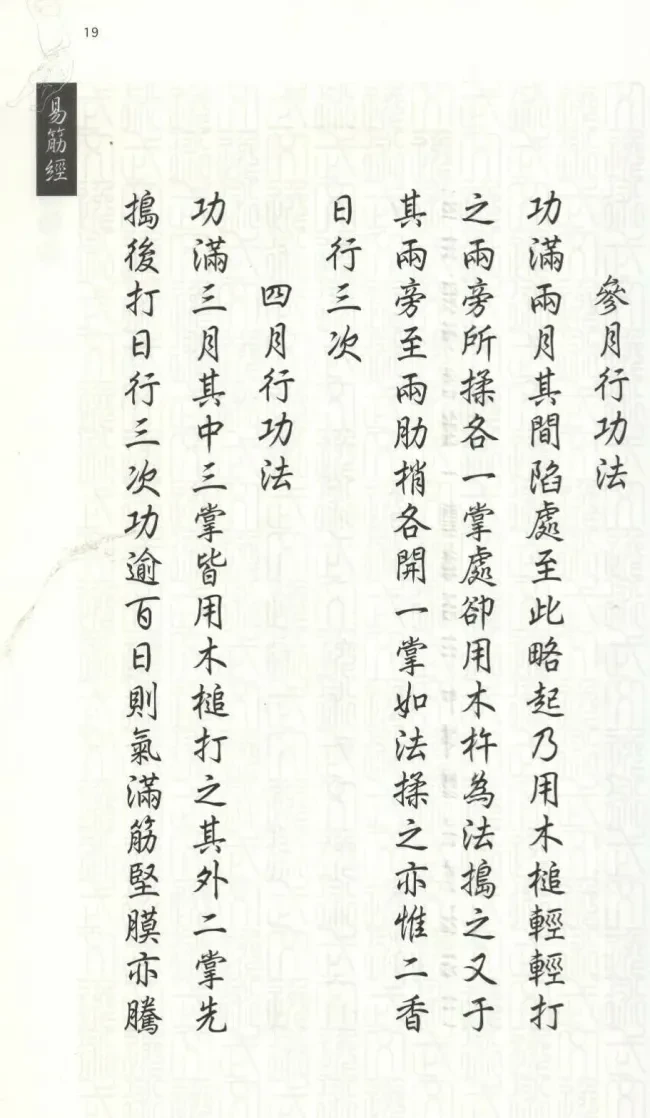 19
易筋經
參月行功法
功滿兩月其間陷處至此略起乃用木槌輕輕打
之兩旁所揉各一掌處卻用木杵為法搗之又于
其兩旁至兩肋梢各開一掌如法揉之亦惟二香
日行三次
四月行功法
功滿三月其中三掌皆用木槌打之其外二掌先
搗後打日行三次功逾百日則氣滿筋堅膜亦騰